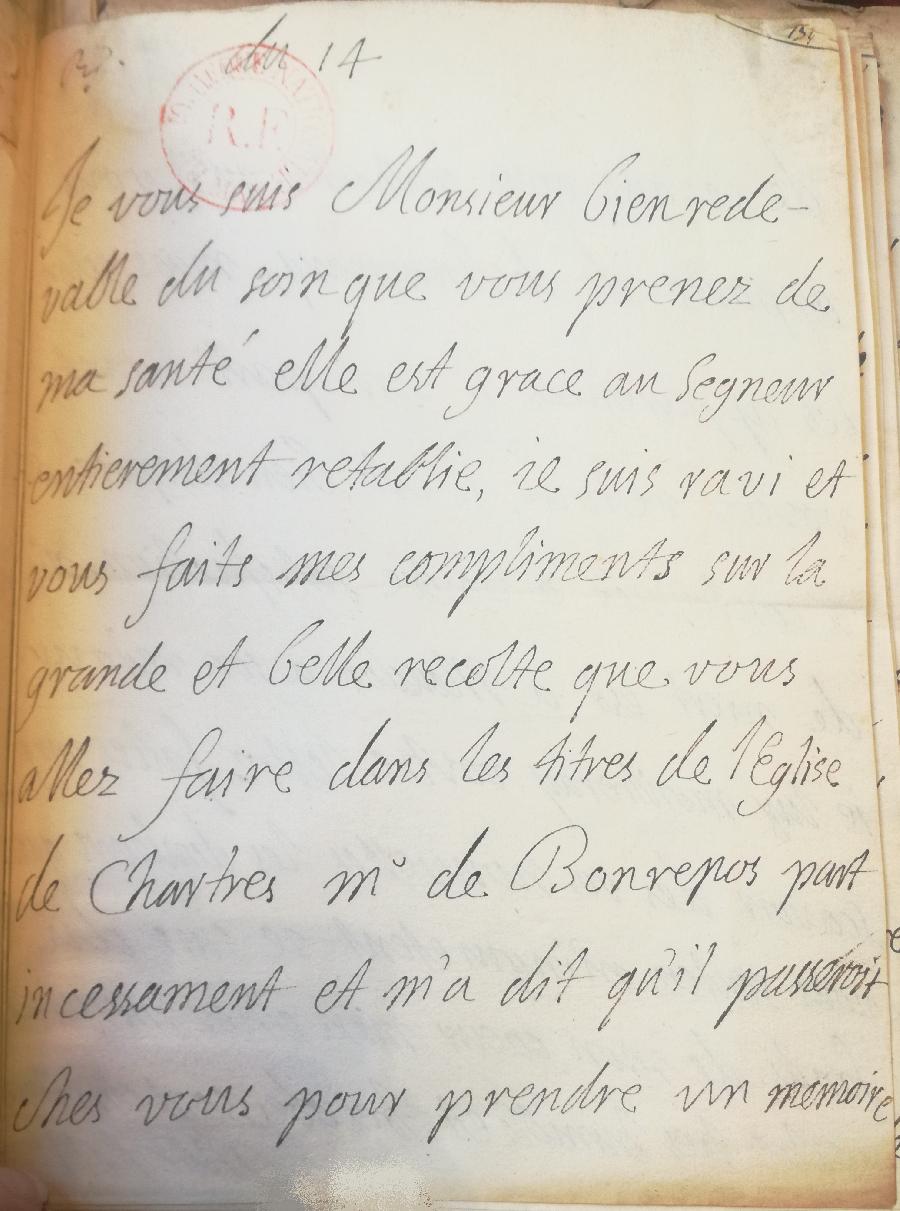 134
du 14
R.F.
Je vous suis Monsieur bien rede-
vable du soin que vous prenez de
ma santé elle est grace au Segneur
entierement retablie, ie suis ravi et
vous faits mes compliments sur la
grande et belle recolte que vous
allez faire dans les titres de l'Eglise
de Chartres mr de Bonrepos part
incessament et m'a dit qu'il passeroit
ches vous pour prendre un memoire